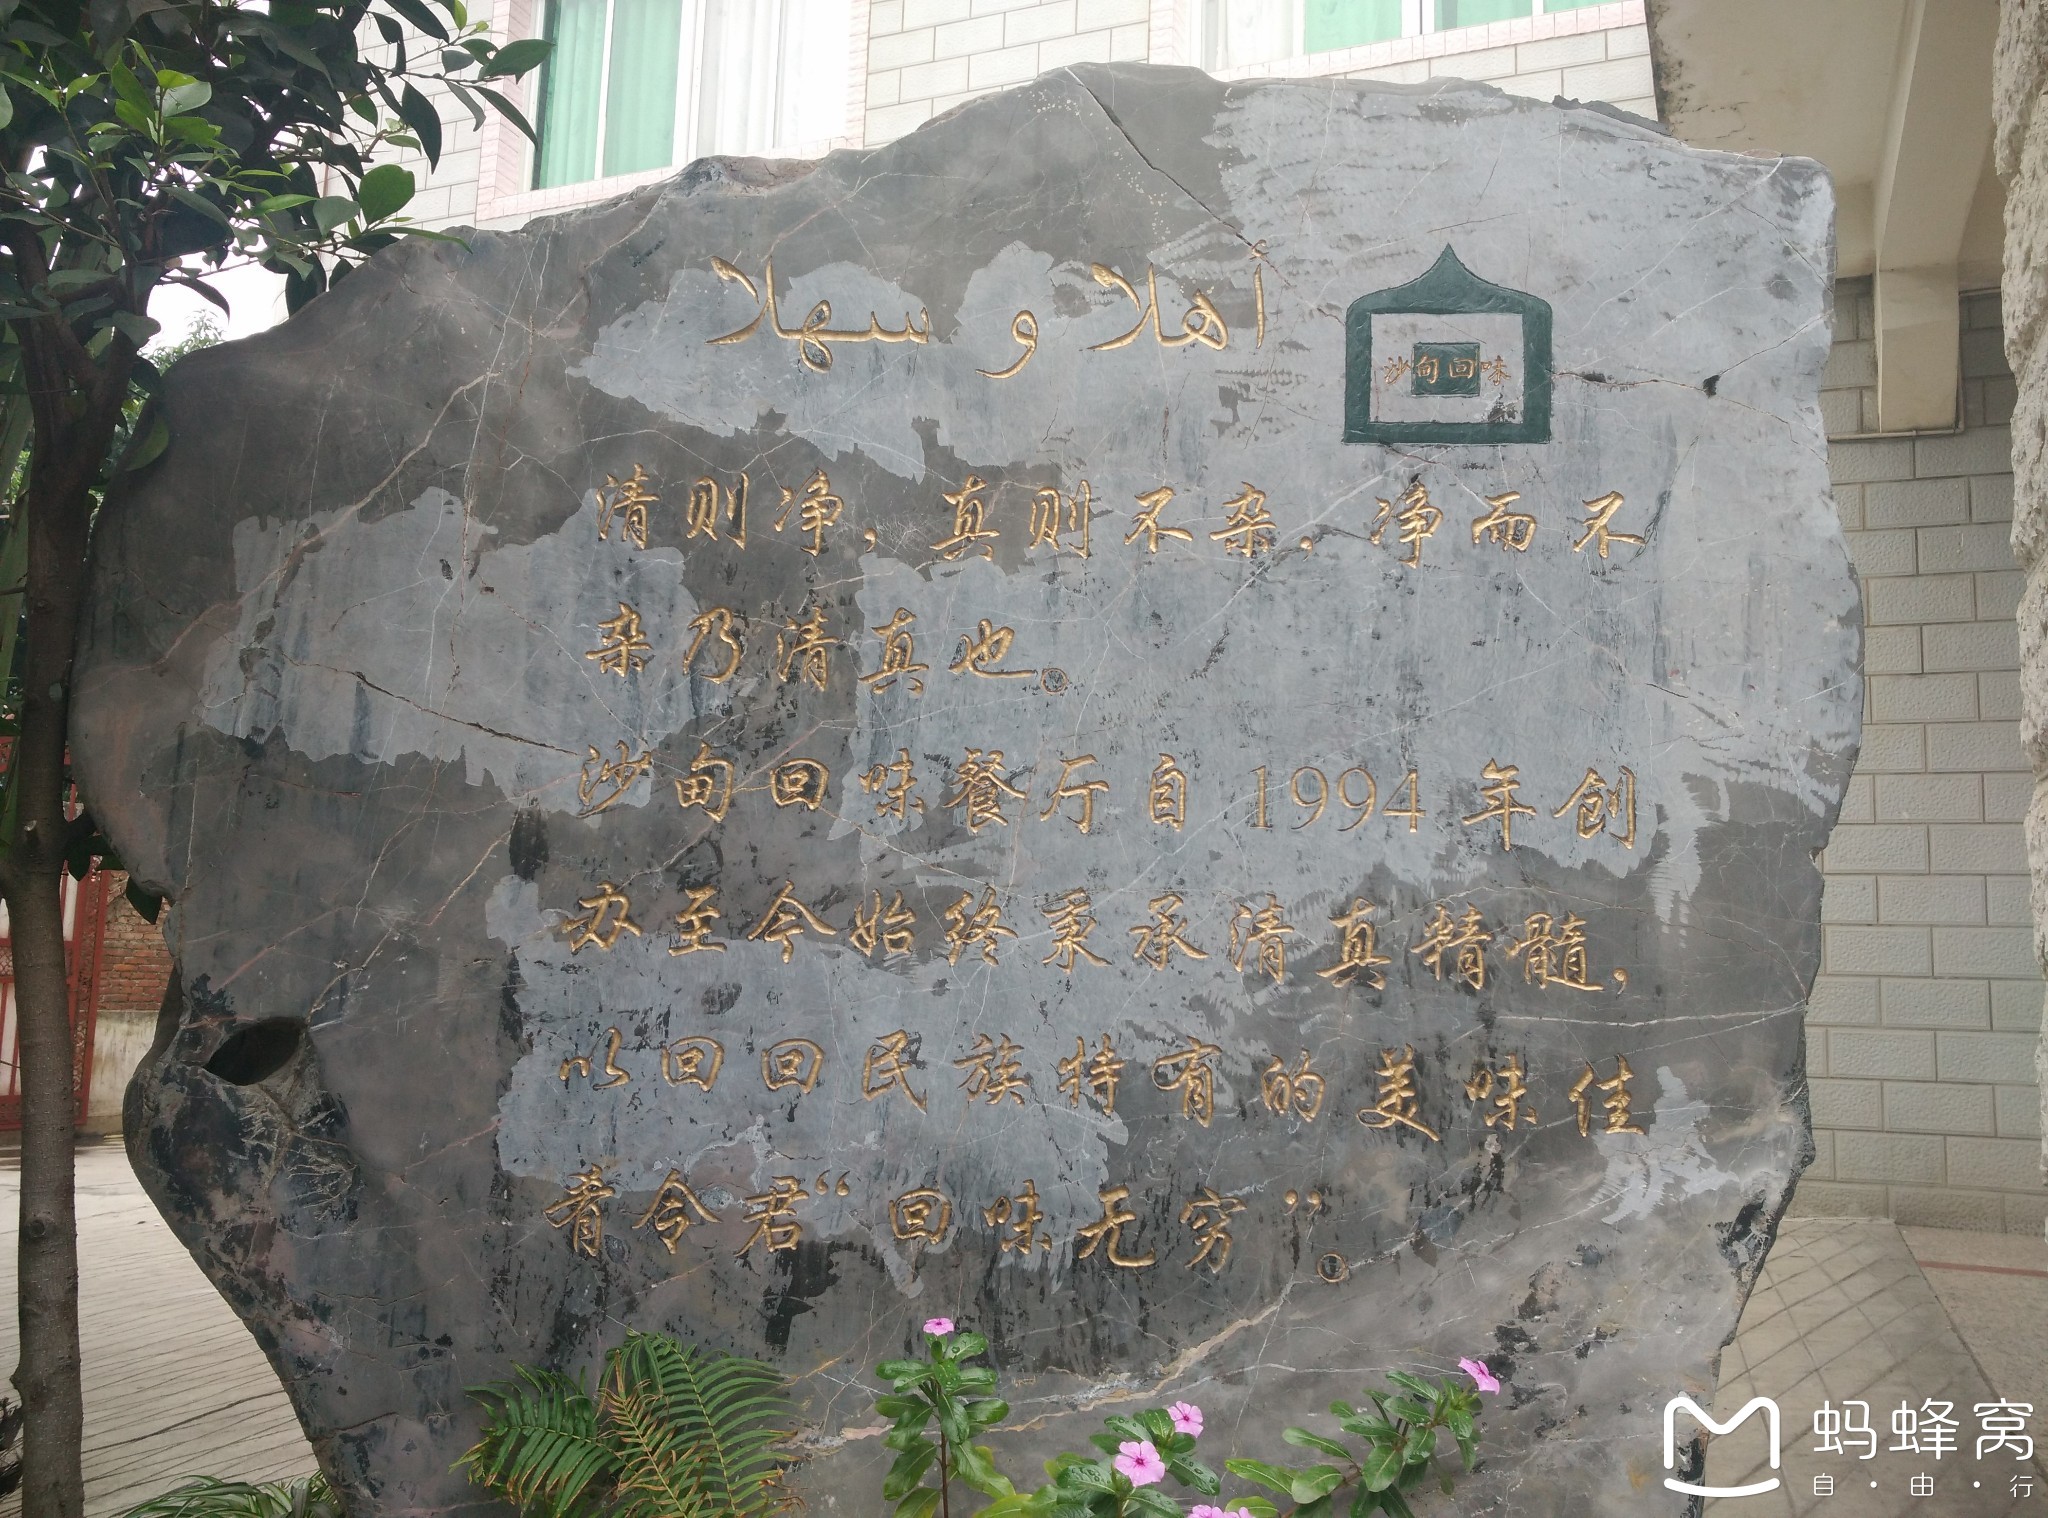 أهلا و سهلا
沙甸回味
清则净，真则不杂．净而不
杂乃清真也。
沙甸回味餐厅自1994年创
办至今始终秉承清真精髓，
以回回民族特有的美味佳
肴令君“回味无穷”。
蚂蜂窝
自·由·行